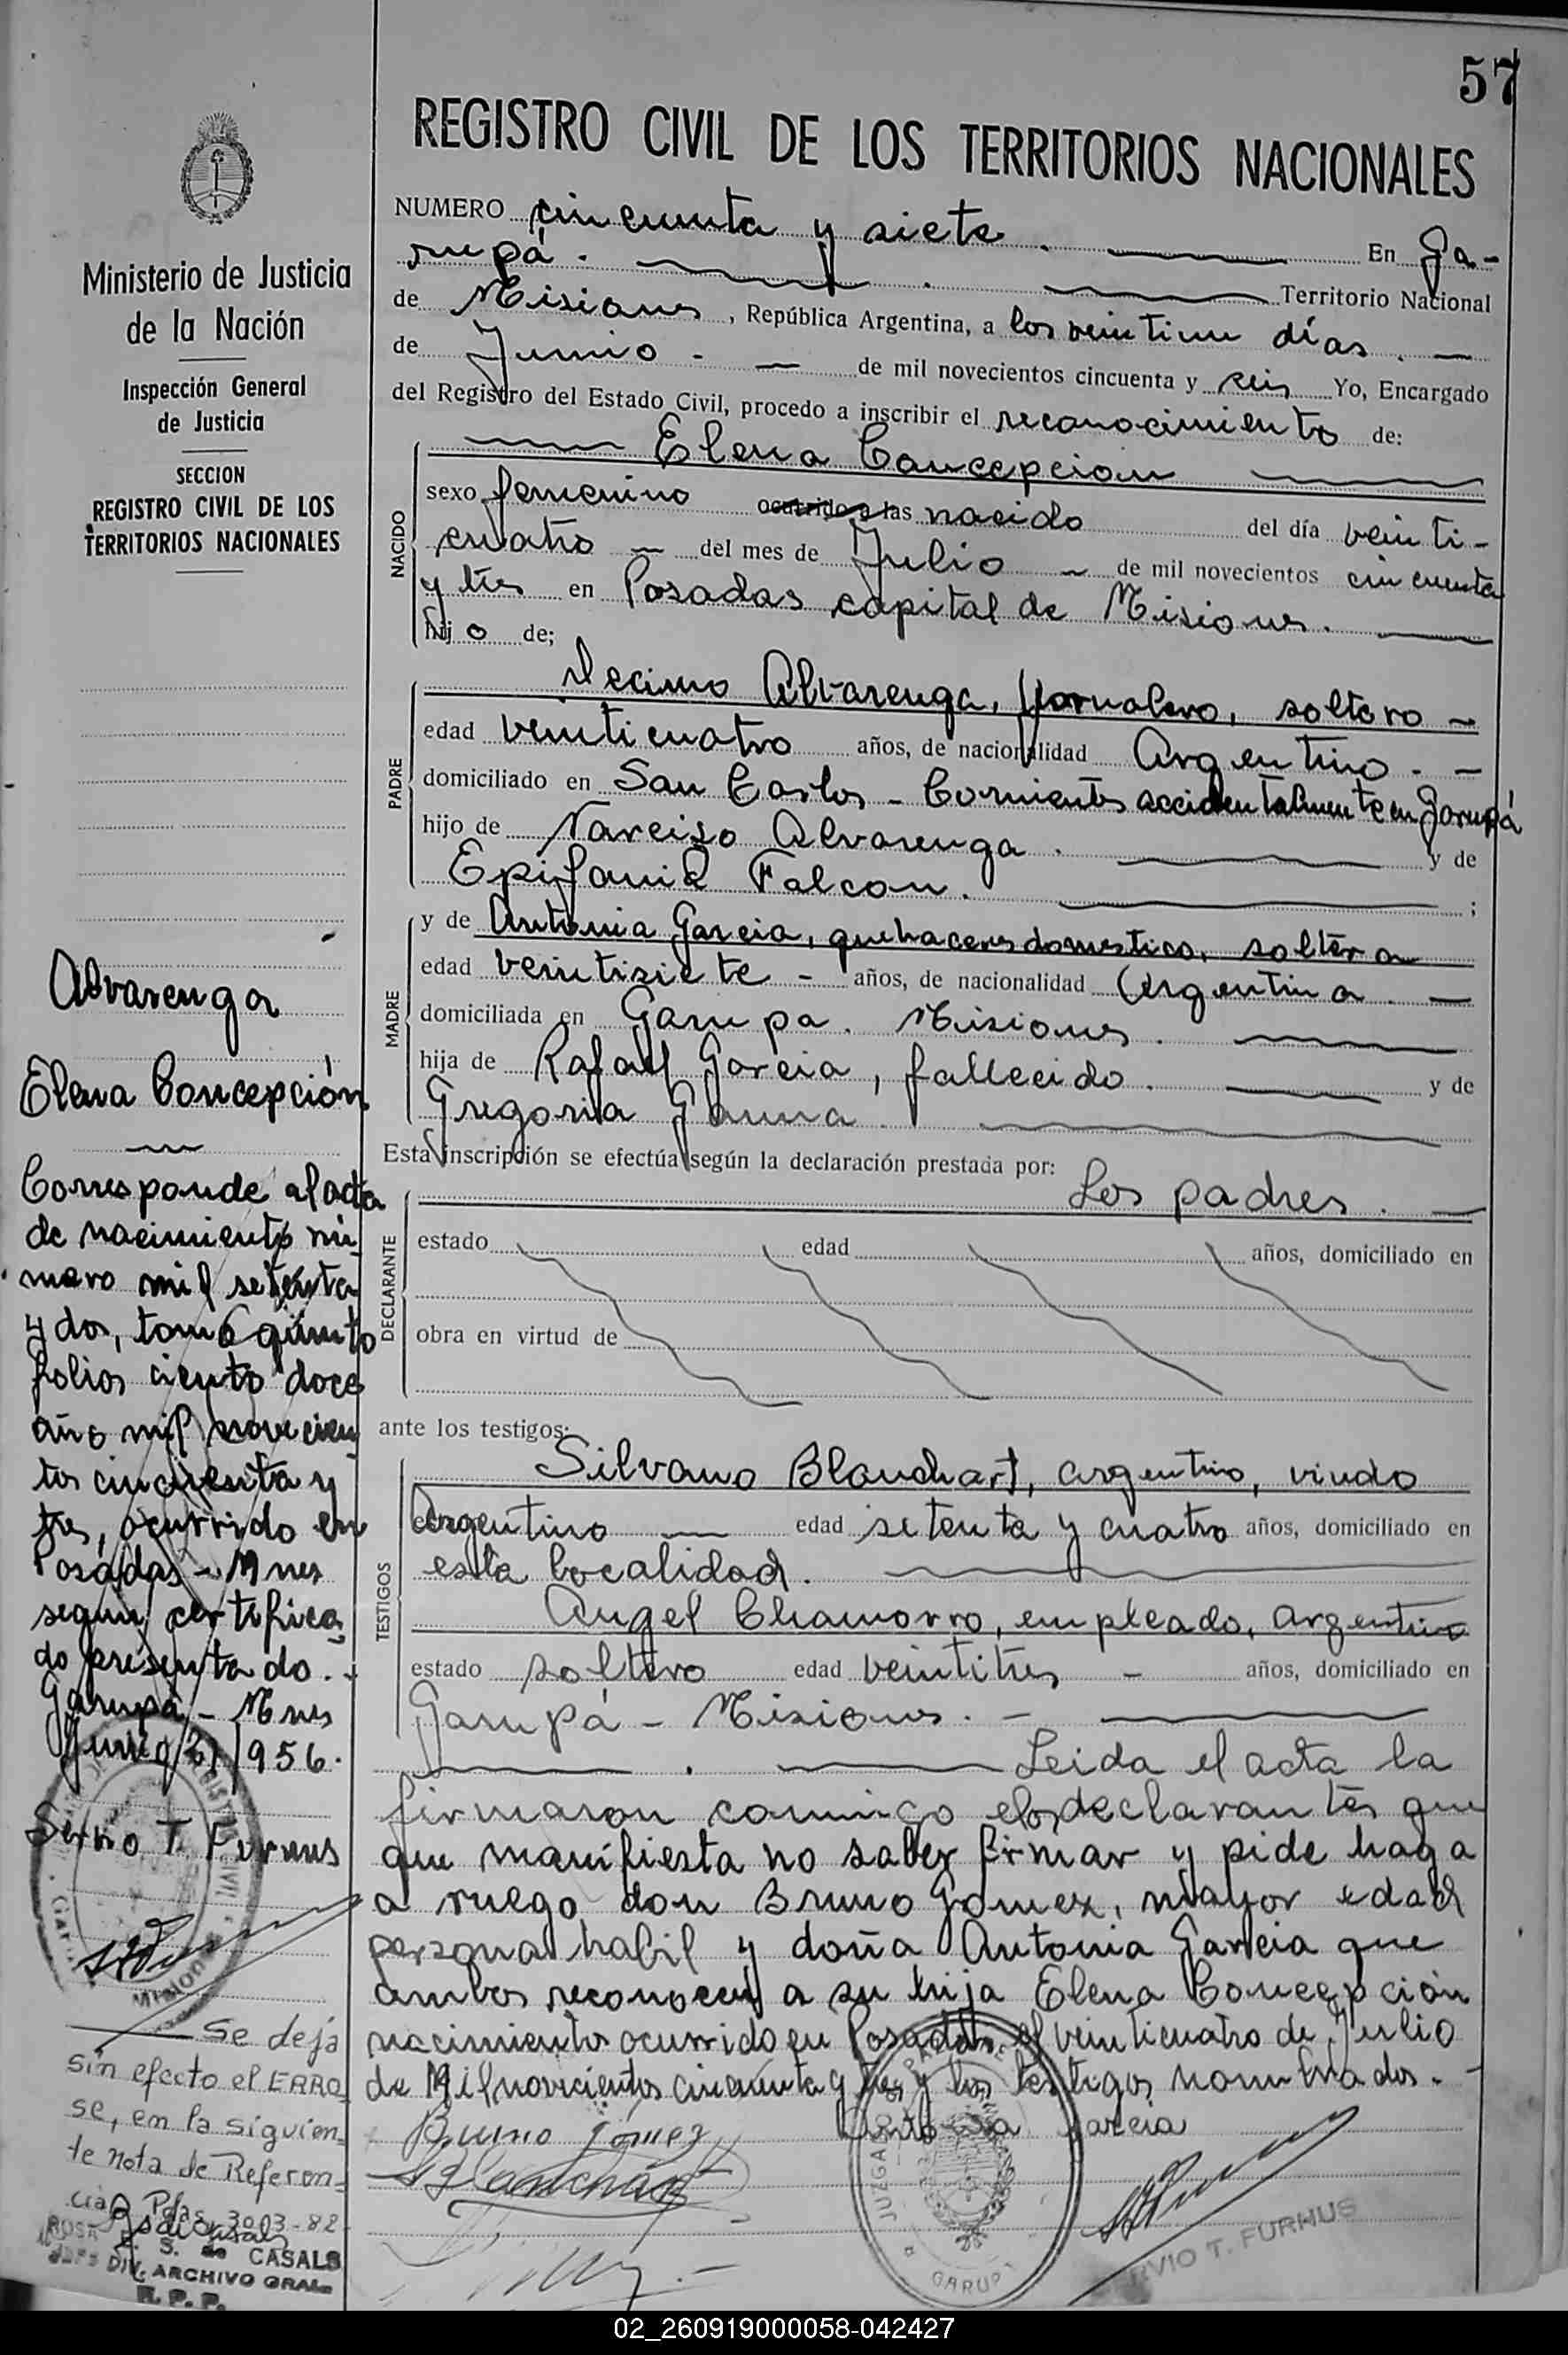 57
REGISTRO CIVIL DE LOS TERRITORIOS NACIONALES
Ministerio de Justicia
de la Nación
Inspección General
de Justicia
SECCION
REGISTRO CIVIL DE LOS
TERRITORIOS NACIONALES
NUMERO cincuenta y siete. En Ga-
rupá. Territorio Nacional
de Misiones, República Argentina, a los veintiun días.
de Junio - de mil novecientos cincuenta y seis Yo, Encargado
del Registro del Estado Civil, procedo a inscribir el reconocimiento de:
NACIDO
Elena Concepcion
sexo femenino ocurrido a las nacido del día veinti-
cuatro del mes de Julio de mil novecientos cincuenta
y tres en Posadas capital de Misiones.
hijo de;
PADRE
Decimo Alvarenga, jornalero, soltero
edad veinticuatro años, de nacionalidad Argentino.
domiciliado en San Carlos - Corrientes accidentalmente en Garupá
hijo de Narciso Alvarenga. y de
Epifania Falcon. ;
MADRE
y de Antonia Garcia, quehaceres domestico, soltera
edad veintisiete - años, de nacionalidad Argentina.
domiciliada en Garupa. Misiones.
hija de Rafael Garcia, fallecido. y de
Gregoria Gauna.
Esta inscripción se efectúa según la declaración prestada por: Los padres.
DECLARANTE
estado edad años, domiciliado en
obra en virtud de
ante los testigos:
TESTIGOS
Silvano Blanchart, argentino, viudo
Argentino edad setenta y cuatro años, domiciliado en
esta localidad.
Angel Chamorro, empleado, argentino
estado soltero edad veintitres - años, domiciliado en
Garupá - Misiones.
Leida el acta la
firmaron conmigo los declarantes que
que manifiesta no saber firmar y pide haga
a ruego don Bruno Gomez, mayor edad
persona habil y doña Antonia Garcia que
ambos reconocen a su hija Elena Concepción
nacimiento ocurrido en Posadas el veinticuatro de Julio
de Mil novecientos cincuenta y tres y los testigos nombrados.
Bruno Gomez
Antonia Garcia
SBlanchart
JUEGADO DE PAZ
GARUPA
SERVIO T. FURHUS
Alvarenga
Elena Concepción
Corresponde al acta
de nacimiento nú
mero mil setenta
y dos, tomo quinto
folios ciento doce
año mil novecien
tos cincuenta y
tres, ocurrido en
Posadas - Mnes
segun certifica
do presentado.
Garupá - Mnes
Junio 21/956.
Servio T. Furhus
Se deja
sin efecto el ERRO
se, en la siguien
te nota de Referen
cia Pdas, 30 03-82
ROSA E. S. de CASALS
JEFE DIV. ARCHIVO GRAL.
R. P. P.
02_260919000058-042427